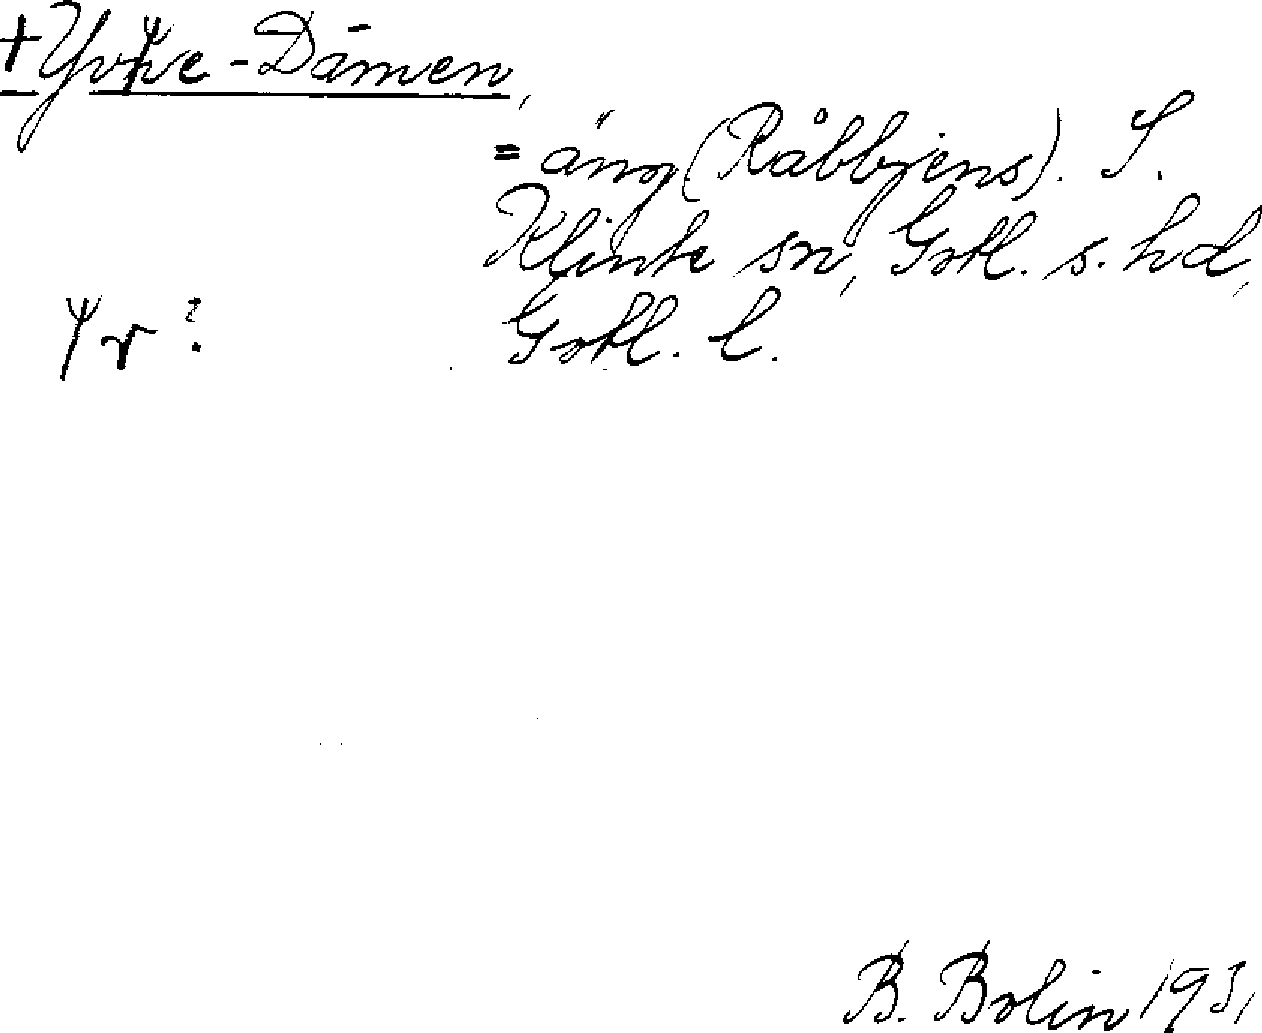 -Dämen,
= äng (Råbbjens). S.
Klinte sn, Gotl. s. hd,
Gotl. l.
B. Bolin 1931